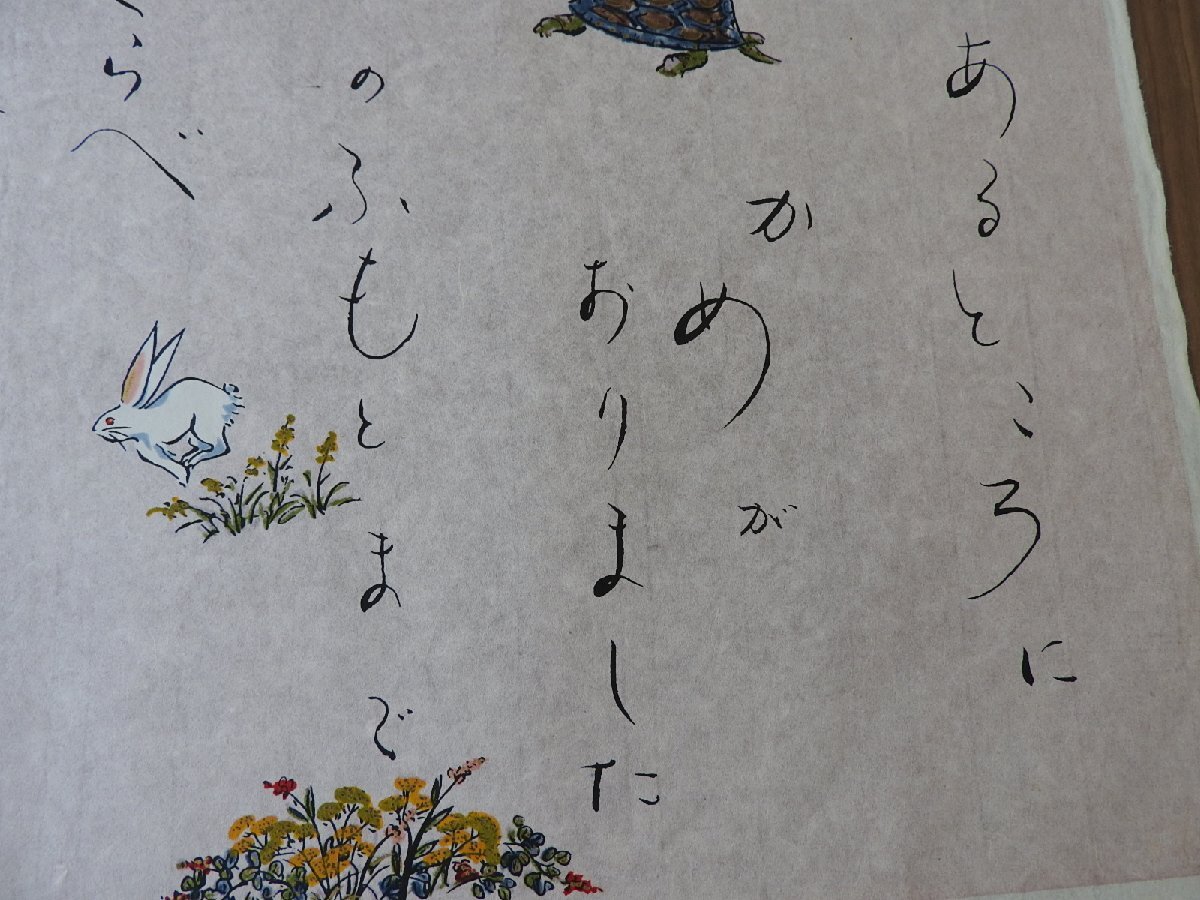 あるところに
かめが
おりました
のふもとまで
らべ